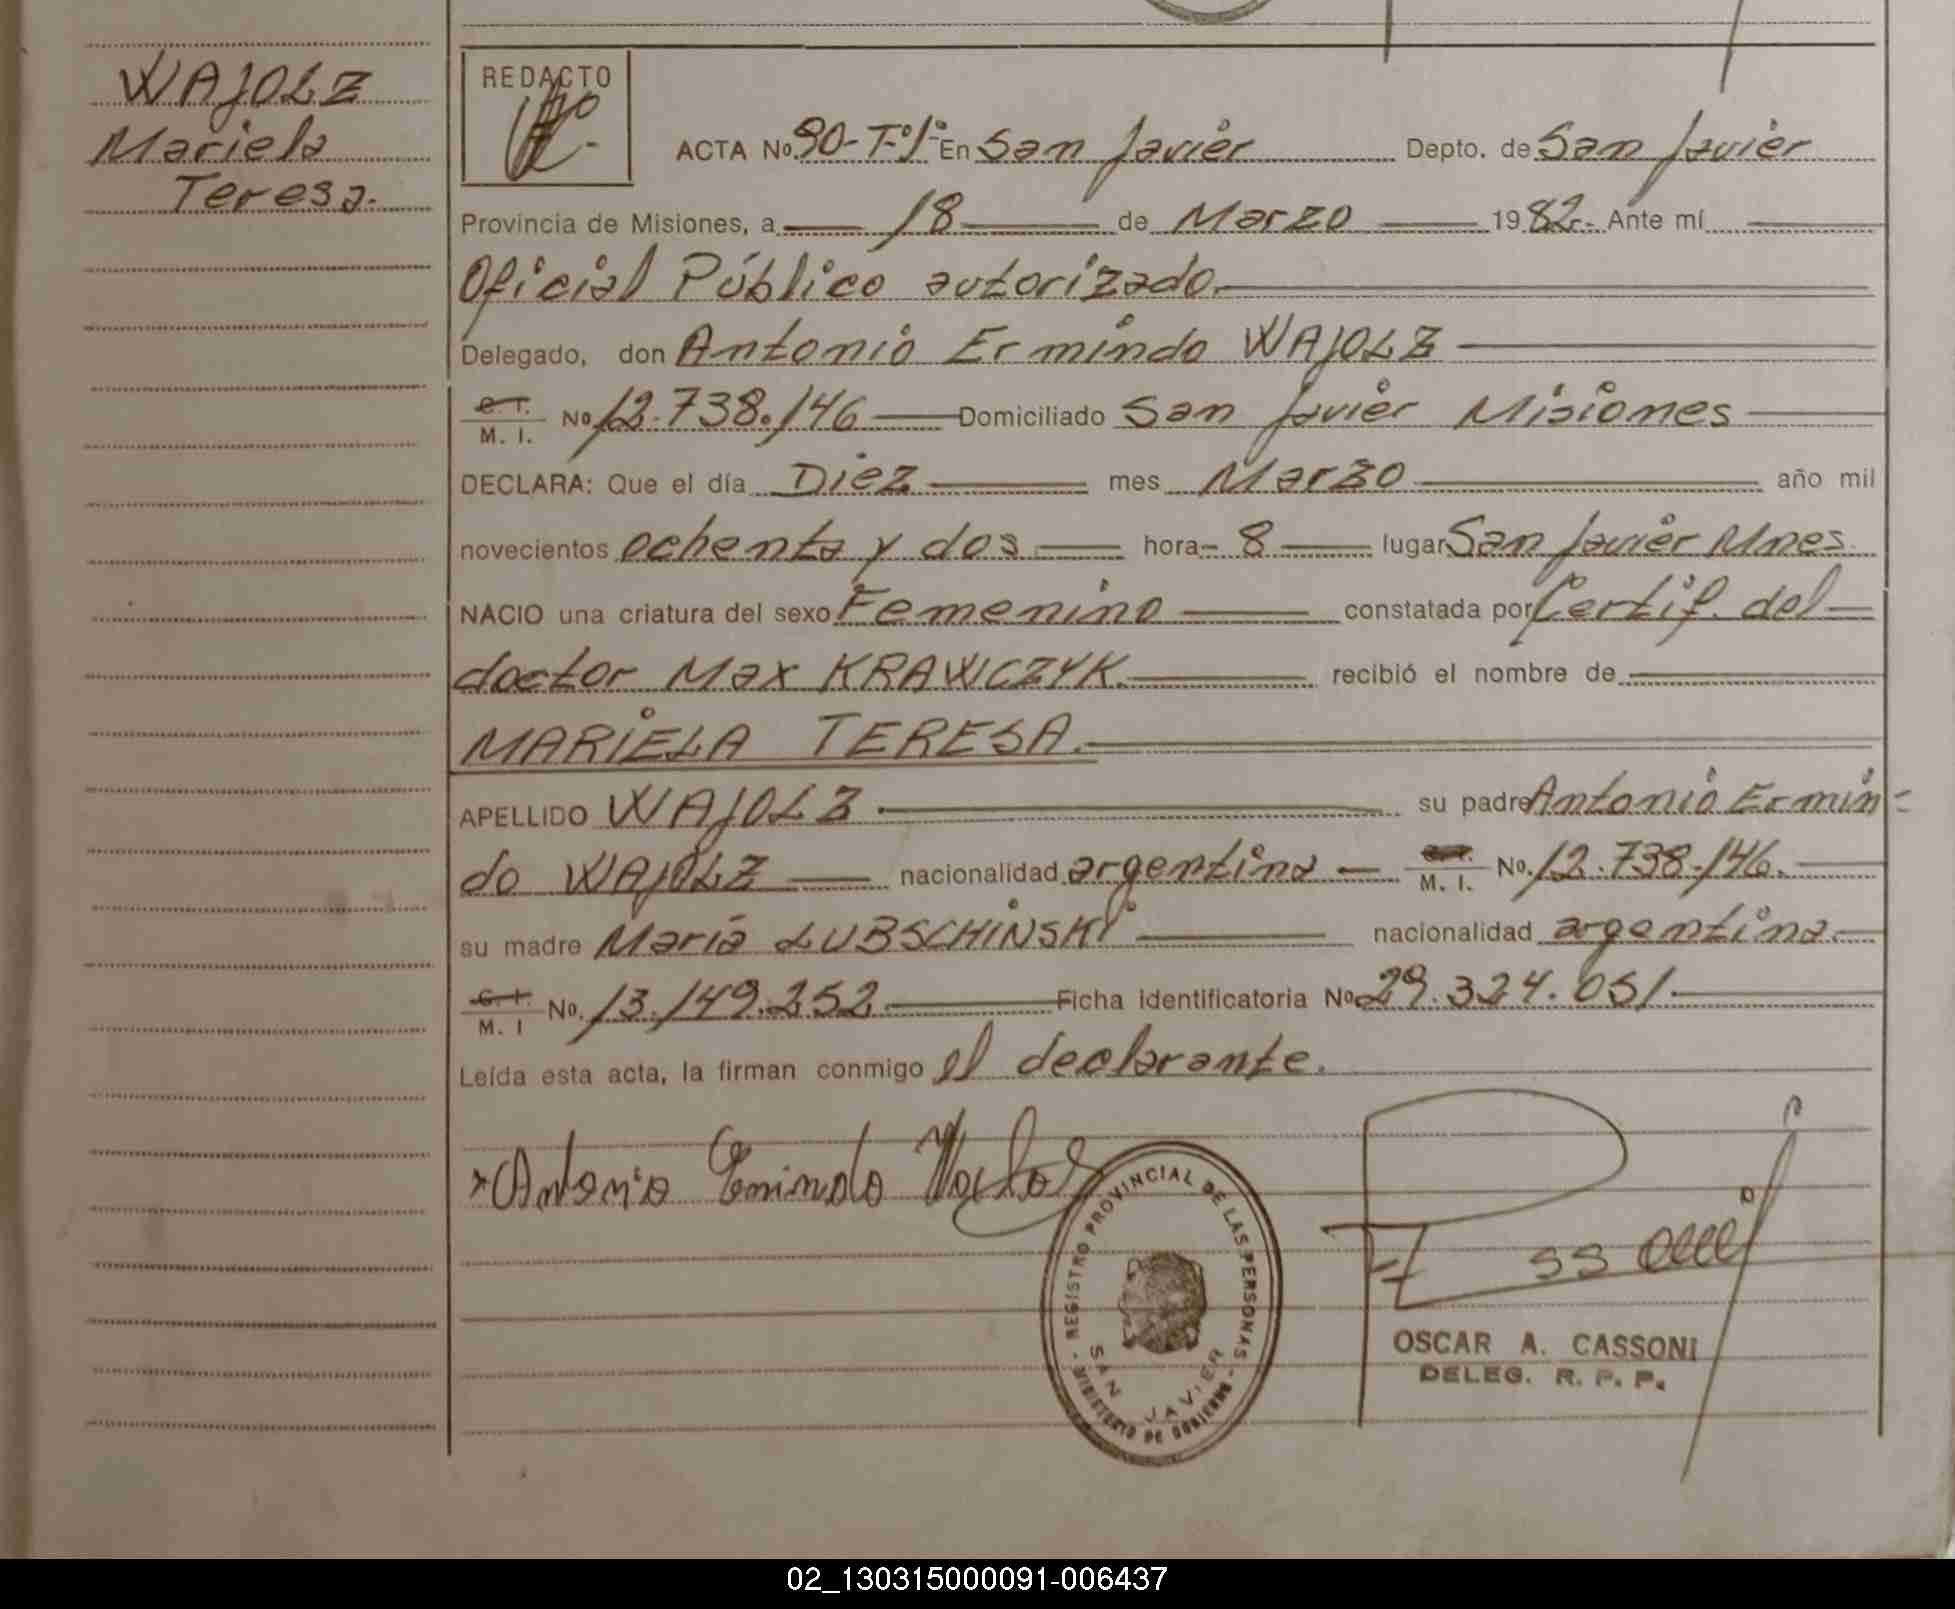 WAJOLZ
Mariela
Teresa.
REDACTO
ACTA No. 90-Tº1º- En San Javier Depto. de San Javier
Provincia de Misiones, a 18 de Marzo 1982.- Ante mí
Oficial Público autorizado.
Delegado, don Antonio Ermindo WAJOLZ
C. I. M. I. No 12.738.146 Domiciliado San Javier Misiones
DECLARA: Que el día Diez mes Marzo año mil
novecientos ochenta y dos hora 8 lugar San Javier Mnes.
NACIO una criatura del sexo Femenino constatada por Certif. del
doctor Max KRAWCZYK. recibió el nombre de
MARIELA TERESA.
APELLIDO WAJOLZ su padre Antonio Ermin-
do WAJOLZ nacionalidad argentina M. I. No. 12.738.146.
su madre María LUBSCHINSKI nacionalidad argentina.
C. I. M. I No. 13.149.252 Ficha identificatoria No 29.324.051
Leída esta acta, la firman conmigo el declarante.
Antonio Ermindo
REGISTRO PROVINCIAL DE LAS PERSONAS
SAN JAVIER
MINISTERIO DE GOBIERNO
OSCAR A. CASSONI
DELEG. R. P. P.
02_130315000091-006437